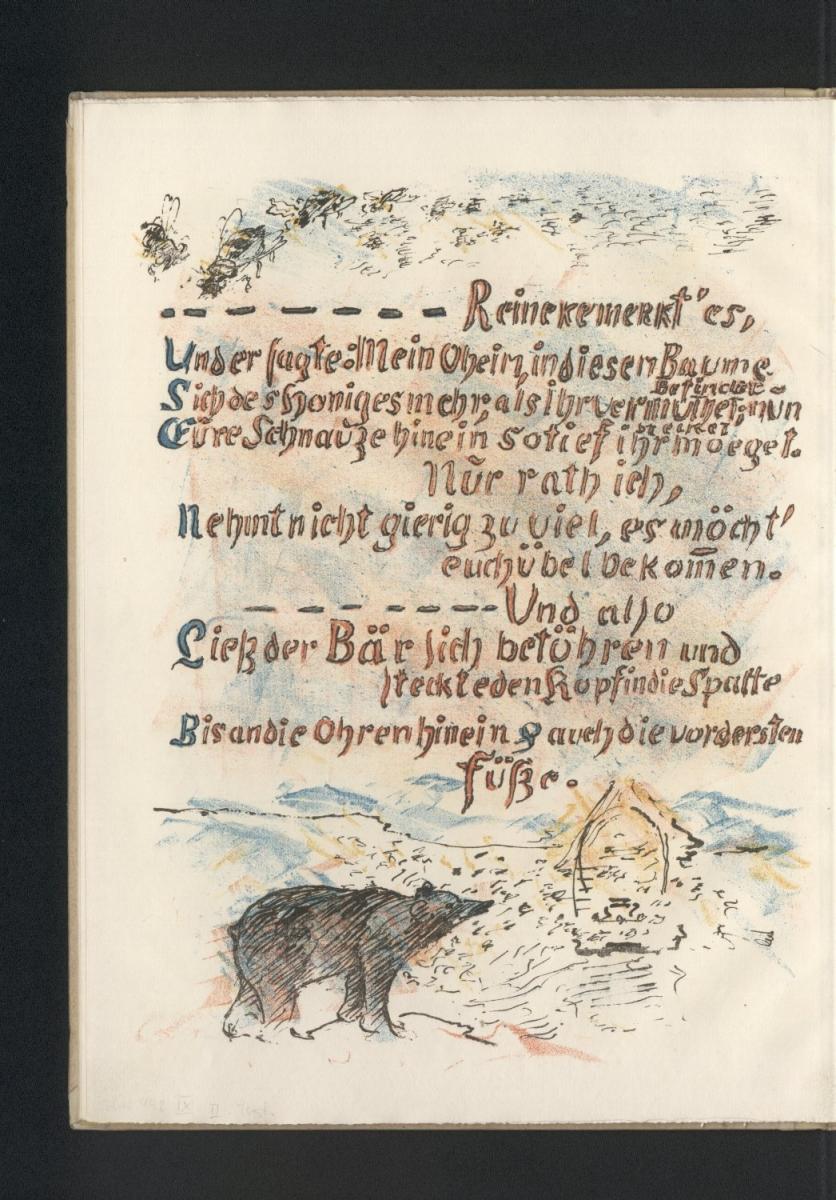 – – – – – – – Reineke merkt' es,
Und er sagte: Mein Oheim, in diesem Baume
Befindet
Sich des Honiges mehr, als ihr vermuthet; nun
stecket
Eure Schnauze hinein so tief ihr moeget.
Nur rath ich,
Nehmt nicht gierig zu viel, es möcht'
euch übel bekom̅en.
– – – – – – – Und also
Ließ der Bär sich betöhren und
steckte den Kopf in die Spalte
Bis an die Ohren hinein & auch die vordersten
Füße.